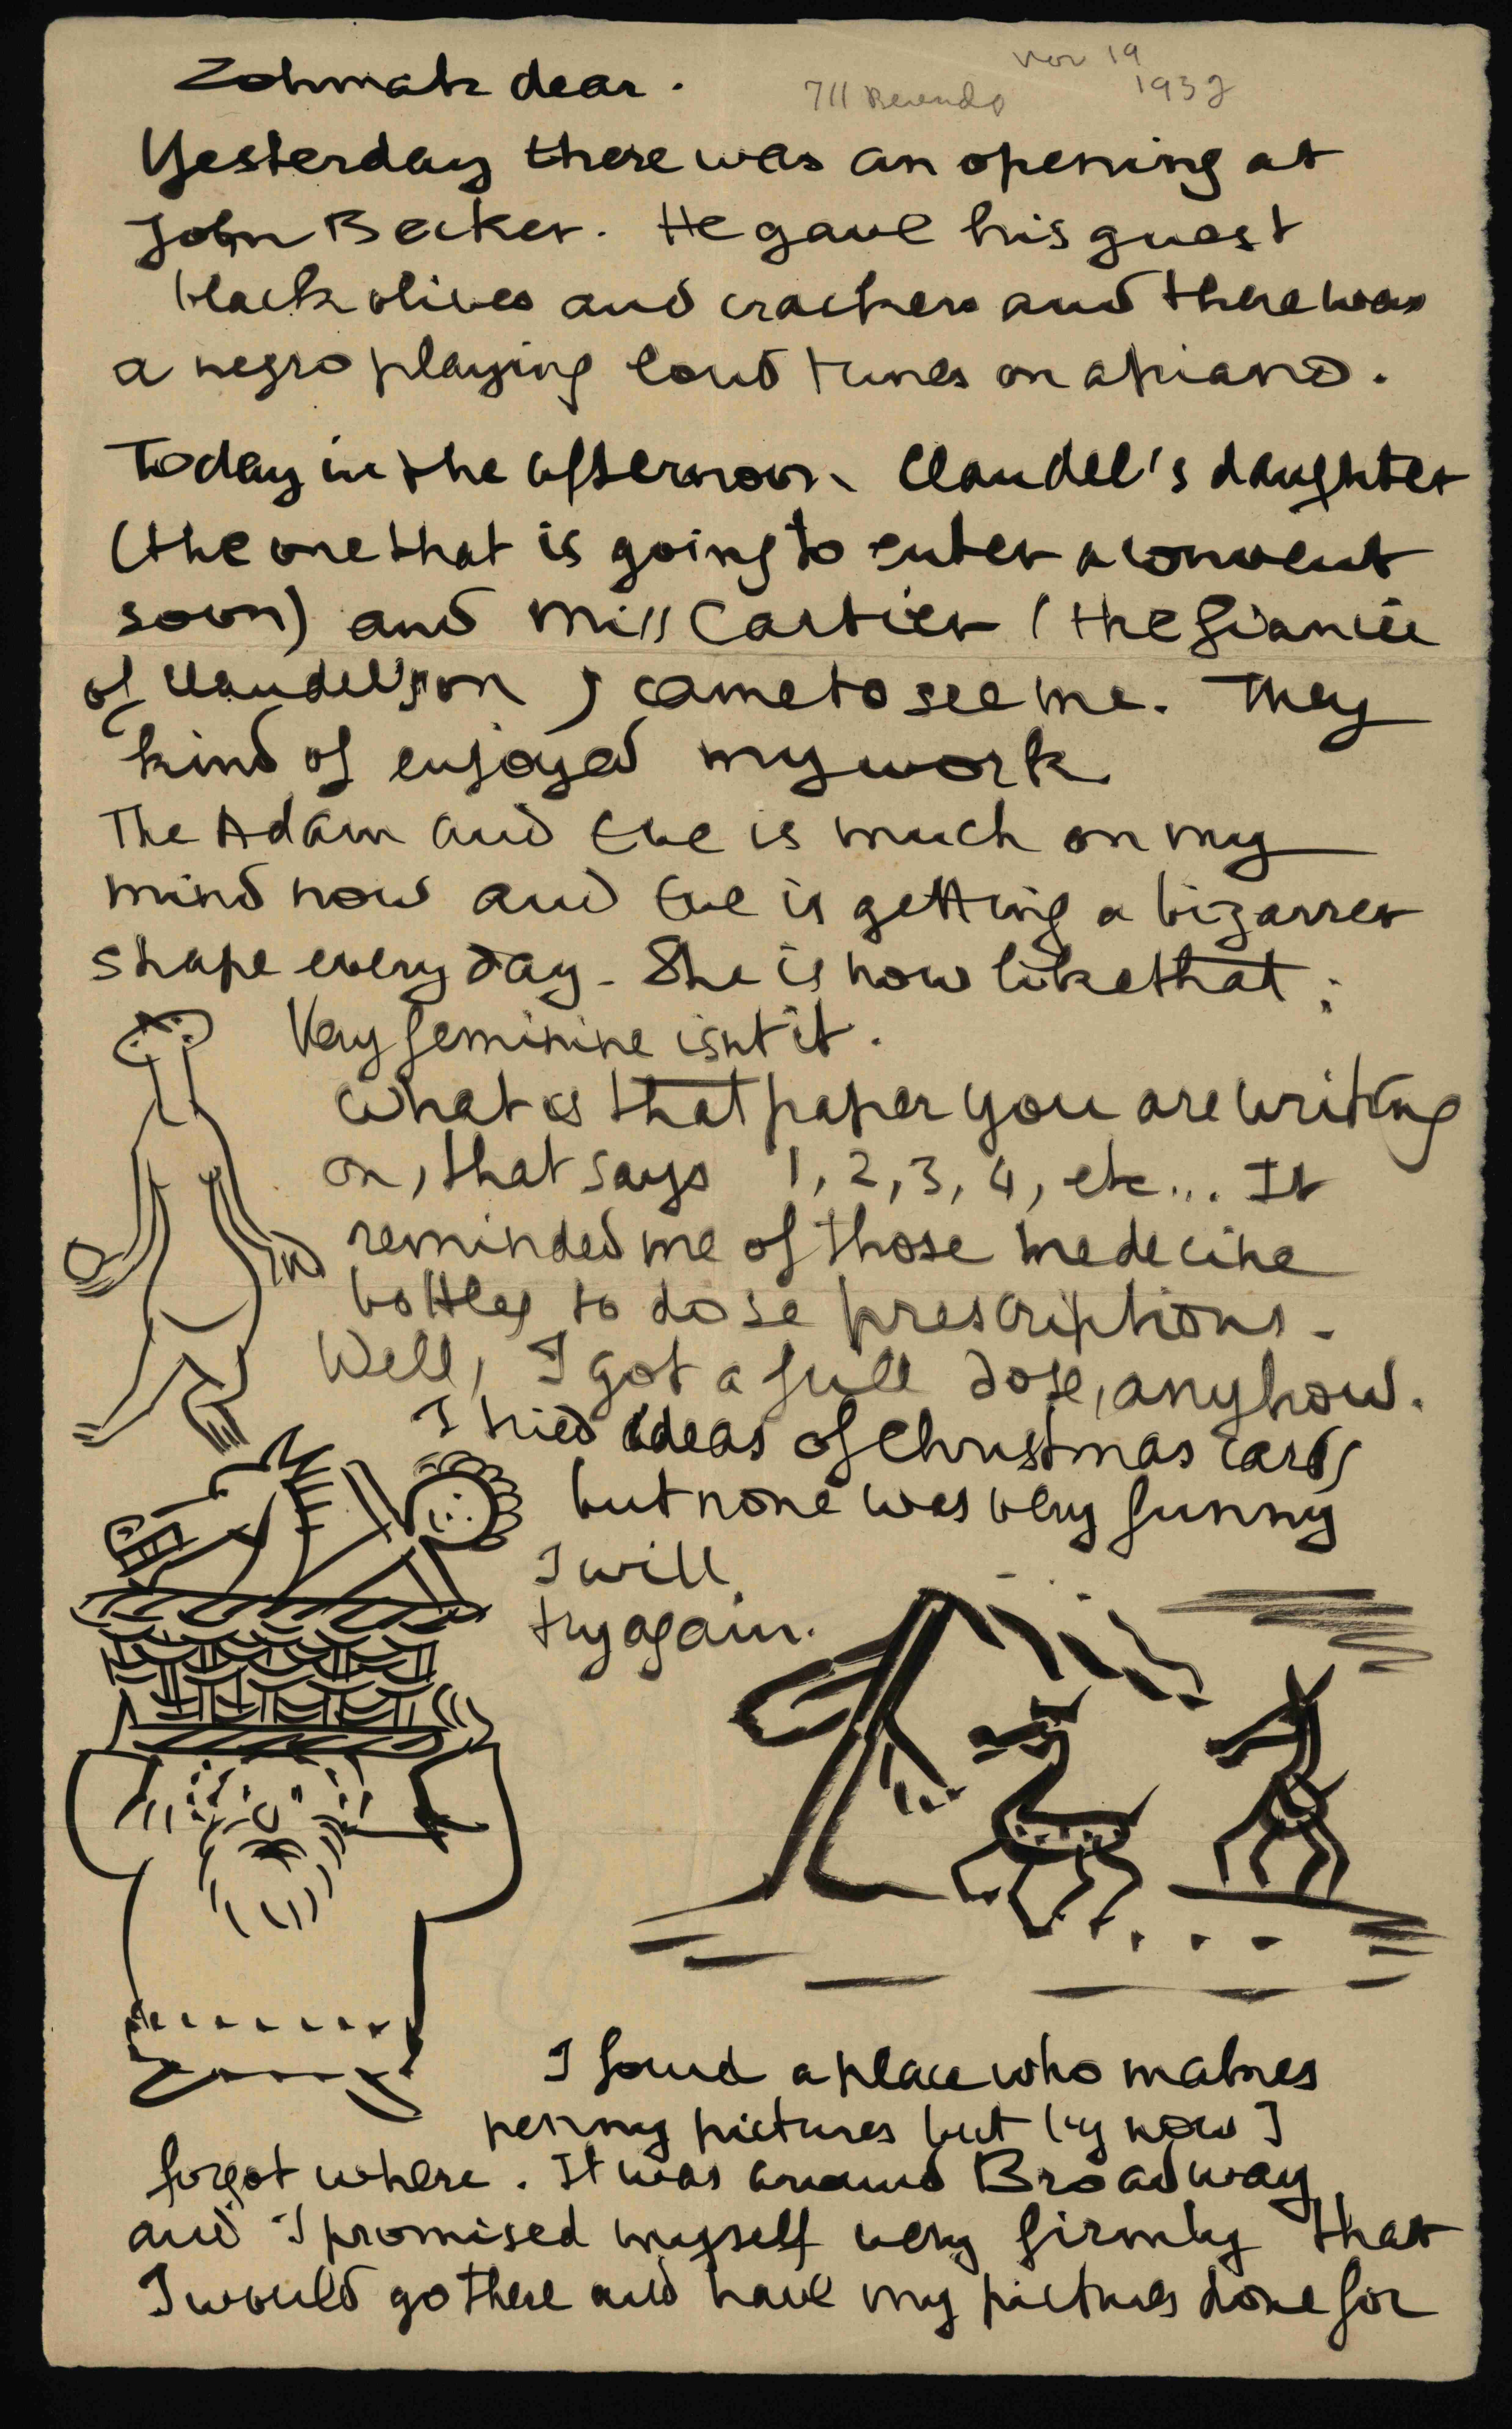 Zohmah dear.
Nov 19
1932
711
Yesterday there was an opening at
John Becker. He gave his guest
black olives and crackers and there was
a negro playing loud tunes on a piano.
Today in the afternoon Claudel's daughter
(the one that is going to enter a convent
soon) and Miss Cartier (the fiancée
of Claudel's son) came to see me. They
kind of enjoyed my work
The Adam and Eve is much on my
mind now and Eve is getting a bizarrer
shape every day - She is now like that :
Very feminine isnt it.
what is that paper you are writing
on, that says 1, 2, 3, 4, etc... It
reminded me of those medecine
bottles to dose prescriptions -
Well, I got a full dose, anyhow.
I tried ideas of Christmas cards
but none was very funny
I will
try again.
I found a place who makes
penny pictures but by now I
forgot where. It was around Broadway
and I promised myself very firmly that
I would go there and have my pictures done for